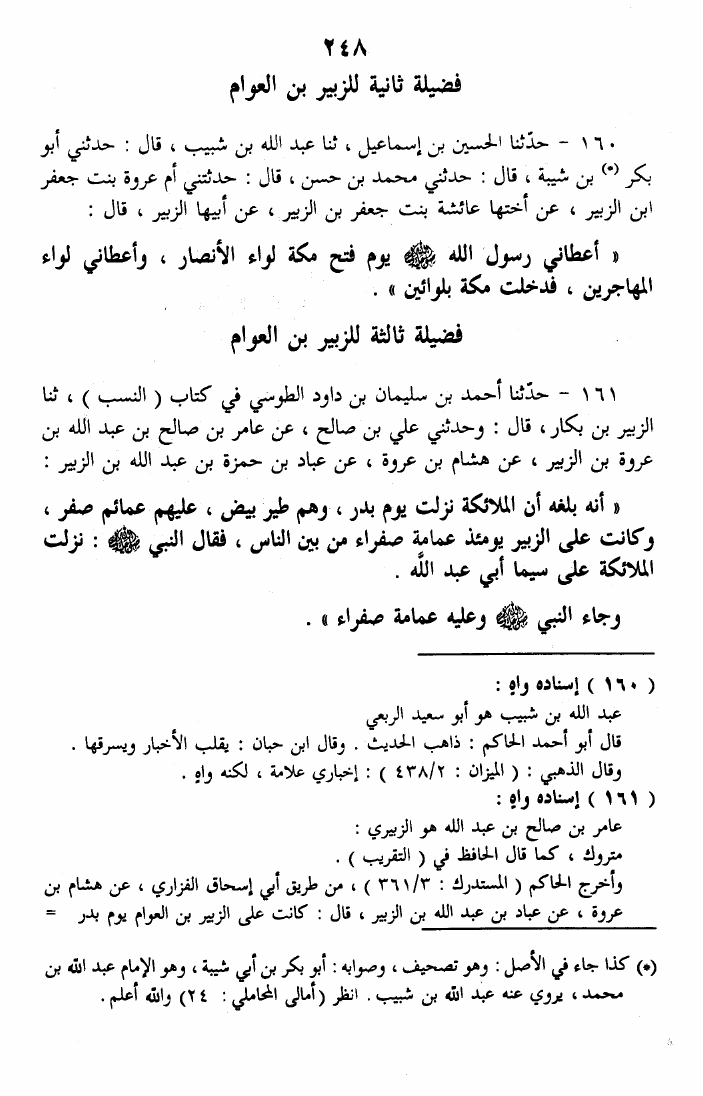 ٢٤٨
فضيلة ثانية للزبير بن العوام
١٦٠ - حدّثنا الحسين بن إسماعيل ، ثنا عبد الله بن شبيب ، قال : حدثني أبو
بكر (*) بن شيبة ، قال : حدثني محمد بن حسن ، قال : حدثتني أم عروة بنت جعفر
ابن الزبير ، عن أختها عائشة بنت جعفر بن الزبير ، عن أبيها الزبير ، قال :
« أعطاني رسول الله ﷺ يوم فتح مكة لواء الأنصار ، وأعطاني لواء
المهاجرين ، فدخلت مكة بلوائين » .
فضيلة ثالثة للزبير بن العوام
١٦١ - حدّثنا أحمد بن سليمان بن داود الطوسي في كتاب ( النسب ) ، ثنا
الزبير بن بكار ، قال : وحدثني علي بن صالح ، عن عامر بن صالح بن عبد الله بن
عروة بن الزبير ، عن هشام بن عروة ، عن عباد بن حمزة بن عبد الله بن الزبير :
« أنه بلغه أن الملائكة نزلت يوم بدر ، وهم طير بيض ، عليهم عمائم صفر ،
وكانت على الزبير يومئذ عمامة صفراء من بين الناس ، فقال النبي ﷺ : نزلت
الملائكة على سيما أبي عبد اللَّه .
وجاء النبي ﷺ وعليه عمامة صفراء » .
( ١٦٠ ) إسناده واهٍ :
عبد الله بن شبيب هو أبو سعيد الربعي
قال أبو أحمد الحاكم : ذاهب الحديث . وقال ابن حبان : يقلب الأخبار ويسرقها .
وقال الذهبي : ( الميزان : ٤٣٨/٢ ) : إخباري علامة ، لكنه واهٍ .
( ١٦١ ) إسناده واهٍ :
عامر بن صالح بن عبد الله هو الزبيري :
متروك ، كما قال الحافظ في ( التقريب ) .
وأخرج الحاكم ( المستدرك : ٣٦١/٣ ) ، من طريق أبي إسحاق الفزاري ، عن هشام بن
عروة ، عن عباد بن عبد الله بن الزبير ، قال : كانت على الزبير بن العوام يوم بدر =
(*) كذا جاء في الأصل : وهو تصحيف ، وصوابه : أبو بكر بن أبي شيبة ، وهو الإمام عبد الله بن
محمد ، يروي عنه عبد الله بن شبيب . انظر (أمالى المحاملي : ٢٤) والله أعلم .